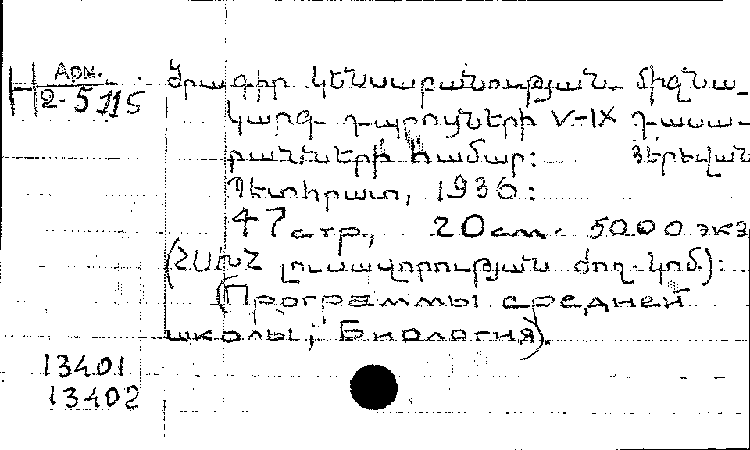 Арм.
2-5115
Ծրագիր կենսաբանության միջնա-
կարգ դպրոցների V-IX դասա-
րանների համար: Յերևան
Պետհրատ, 1936:
47 стр., 20 см. 5000 экз.
(ՀՍԽՀ լուսավորության ժող. կոմ.):
(Программы средней
школы; Биология).
13401
13402